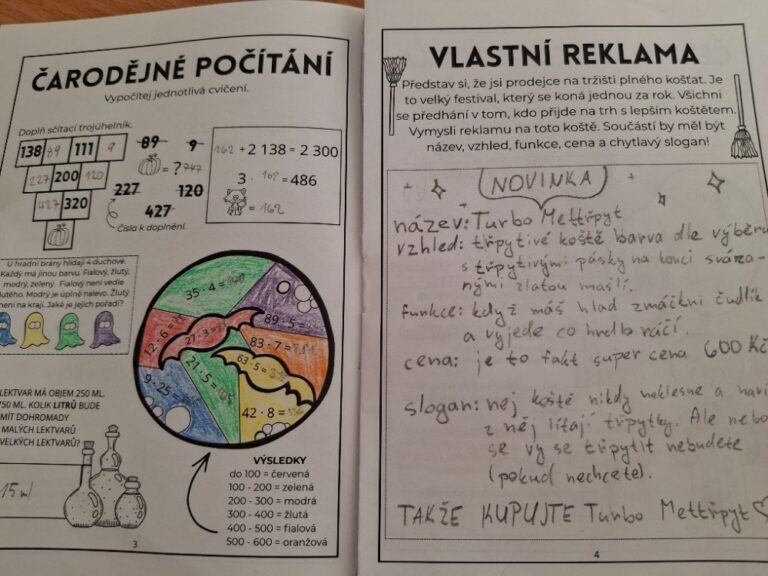 ČARODĚJNÉ POČÍTÁNÍ
Vypočítej jednotlivá cvičení.
Doplň sčítací trojúhelník.
138 89 111 9
227 200 120
427 320
89 9
= ? 747
227 120
427
Čísla k doplnění.
162 + 2 138 = 2 300
3 · 162 = 486
= 162
U hradní brány hlídají 4 duchové.
Každý má jinou barvu. Fialový, žlutý,
modrý, zelený. Fialový není vedle
žlutého. Modrý je úplně nalevo. Žlutý
není na kraji. Jaké je jejich pořadí?
35 · 4 =
89 · 5 =
12 · 6 =
27 · 3 =
83 · 7 =
21 · 5 = 105
63 · 5 =
9 · 25 =
42 · 8 =
LEKTVAR MÁ OBJEM 250 ML.
750 ML. KOLIK LITRŮ BUDE
MÍT DOHROMADY
MALÝCH LEKTVARŮ
VELKÝCH LEKTVARŮ?
15 ml
VÝSLEDKY
do 100 = červená
100 - 200 = zelená
200 - 300 = modrá
300 - 400 = žlutá
400 - 500 = fialová
500 - 600 = oranžová
3
VLASTNÍ REKLAMA
Představ si, že jsi prodejce na tržišti plného košťat. Je
to velký festival, který se koná jednou za rok. Všichni
se předhání v tom, kdo přijde na trh s lepším koštětem.
Vymysli reklamu na toto koště. Součástí by měl být
název, vzhled, funkce, cena a chytlavý slogan!
NOVINKA
název: Turbo Mettřpyt
vzhled: třpytivé koště barva dle výběru
s třpytivými pásky na konci sváza-
nými zlatou mašlí.
funkce: když máš hlad zmáčkni čudlík
a vyjede co hrdlo ráčí.
cena: je to fakt super cena 600 Kč
slogan: nej koště nikdy neklesne a navíc
z něj lítají třpytky. Ale nebo
se vy se třpytit nebudete
(pokud nechcete).
TAKŽE KUPUJTE Turbo Mettřpyt
4